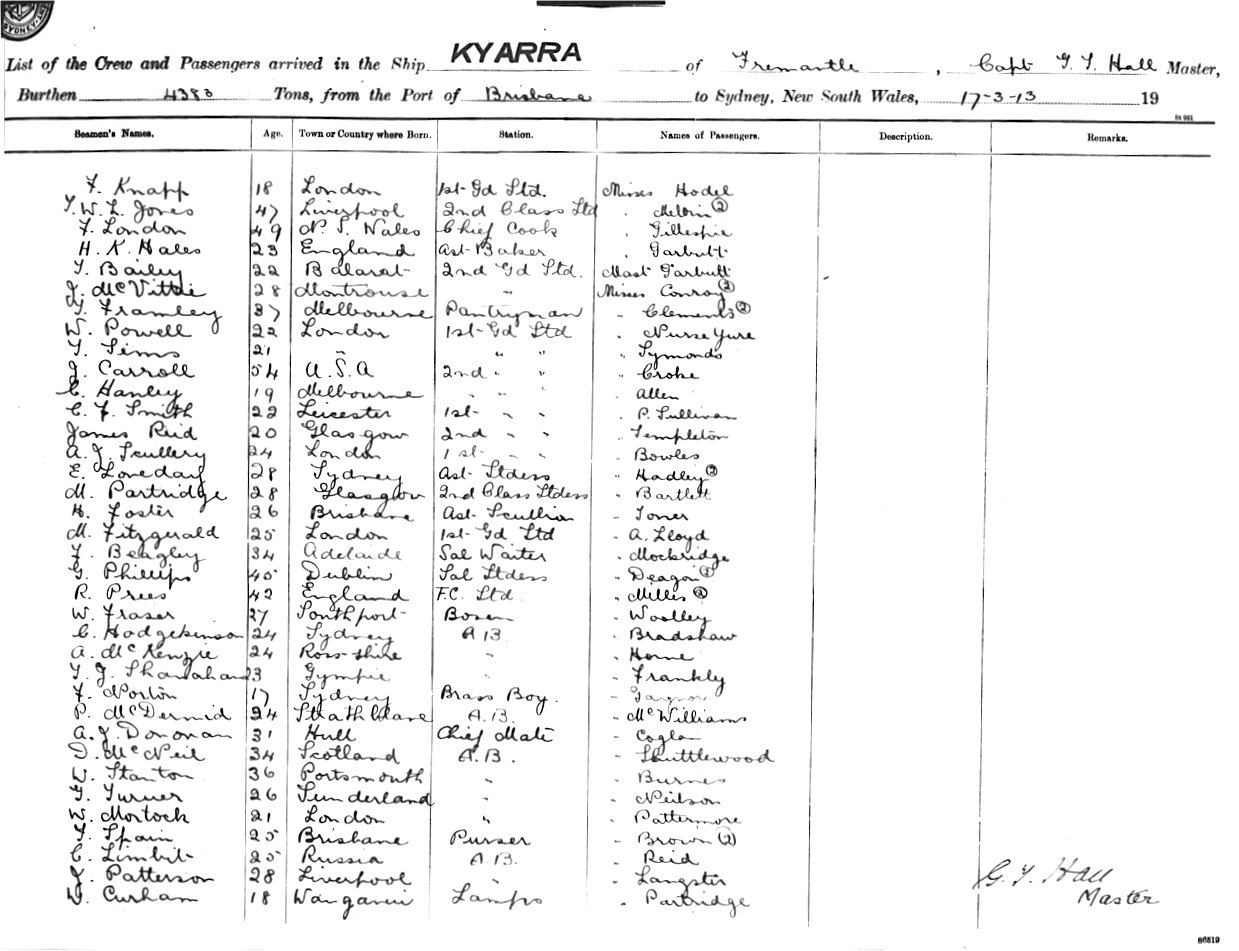 SYDNEY
KYARRA
List of the Crew and Passengers arrived in the Ship KYARRA of Fremantle, Capt G. T. Hall Master,
Burthen 4383 Tons, from the Port of Brisbane to Sydney, New South Wales, 17-3-13 19
Seamen's Names. Age. Town or Country where Born. Station. Names of Passengers. Description. Remarks.
F. Knapp 18 London 1st Gd Std. Misses Hodel
T. W. L. Jones 47 Liverpool 2nd Class Std " Melvin (2)
F. London 49 N. S. Wales Chief Cook " Gillespie
H. K. Hales 23 England Ast Baker " Garbutt
T. Bailey 22 Balarat 2nd Gd Std. Mast Garbutt
J. McVittie 28 Montrouse " Misses Conroy (2)
G. Framley 37 Melbourne Pantryman " Clements (2)
W. Powell 22 London 1st Gd Std " Nurse Yure
T. Sims 21 " " " " Symonds
J. Carroll 54 U.S.A 2nd " " " Croke
C. Hanley 19 Melbourne " " " Allen
C. F. Smith 22 Leicester 1st " " " P. Sullivan
James Reid 20 Glasgow 2nd " " " Templeton
A. J. Scullery 24 London 1st " " " Bowles
E. Loveday 28 Sydney Ast Stdess " Hadley (2)
M. Partridge 28 Glasgow 2nd Class Stdess " Bartlett
H. Foster 26 Brisbane Ast Scullion " Toner
M. Fitzgerald 25 London 1st Gd Std " A. Lloyd
F. Beagley 34 Adelaide Sal Waiter " Mockridge
G. Phillips 45 Dublin Sal Stdess " Deagon
R. Prees 42 England F.C. Std " Milles (2)
W. Fraser 27 Southport Bosen " Woolley
C. Hodgekinson 24 Sydney A B " Bradshaw
A. McKenzie 24 Ross-shire " " Horne
T. J. Shanahan 23 Gympie " " Frankly
F. Norton 17 Sydney Brass Boy. "
P. McDermid 24 Strathblane A.B. " McWilliams
A. J. Donovan 31 Hull Chief Mate " Coglan
D. McNeil 34 Scotland A.B. " Shuttlewood
W. Stanton 36 Portsmouth " " Burnes
G. Turner 26 Sunderland " " Neilson
W. Mortock 21 London " " Pattermore
F. Spain 25 Brisbane Purser " Brown (2)
C. Limbit 25 Russia A.B. " Reid
J. Patterson 28 Liverpool " " Langster
W. Curham 18 Wangarin Lamps " Partridge
G. T. Hall
Master
86519